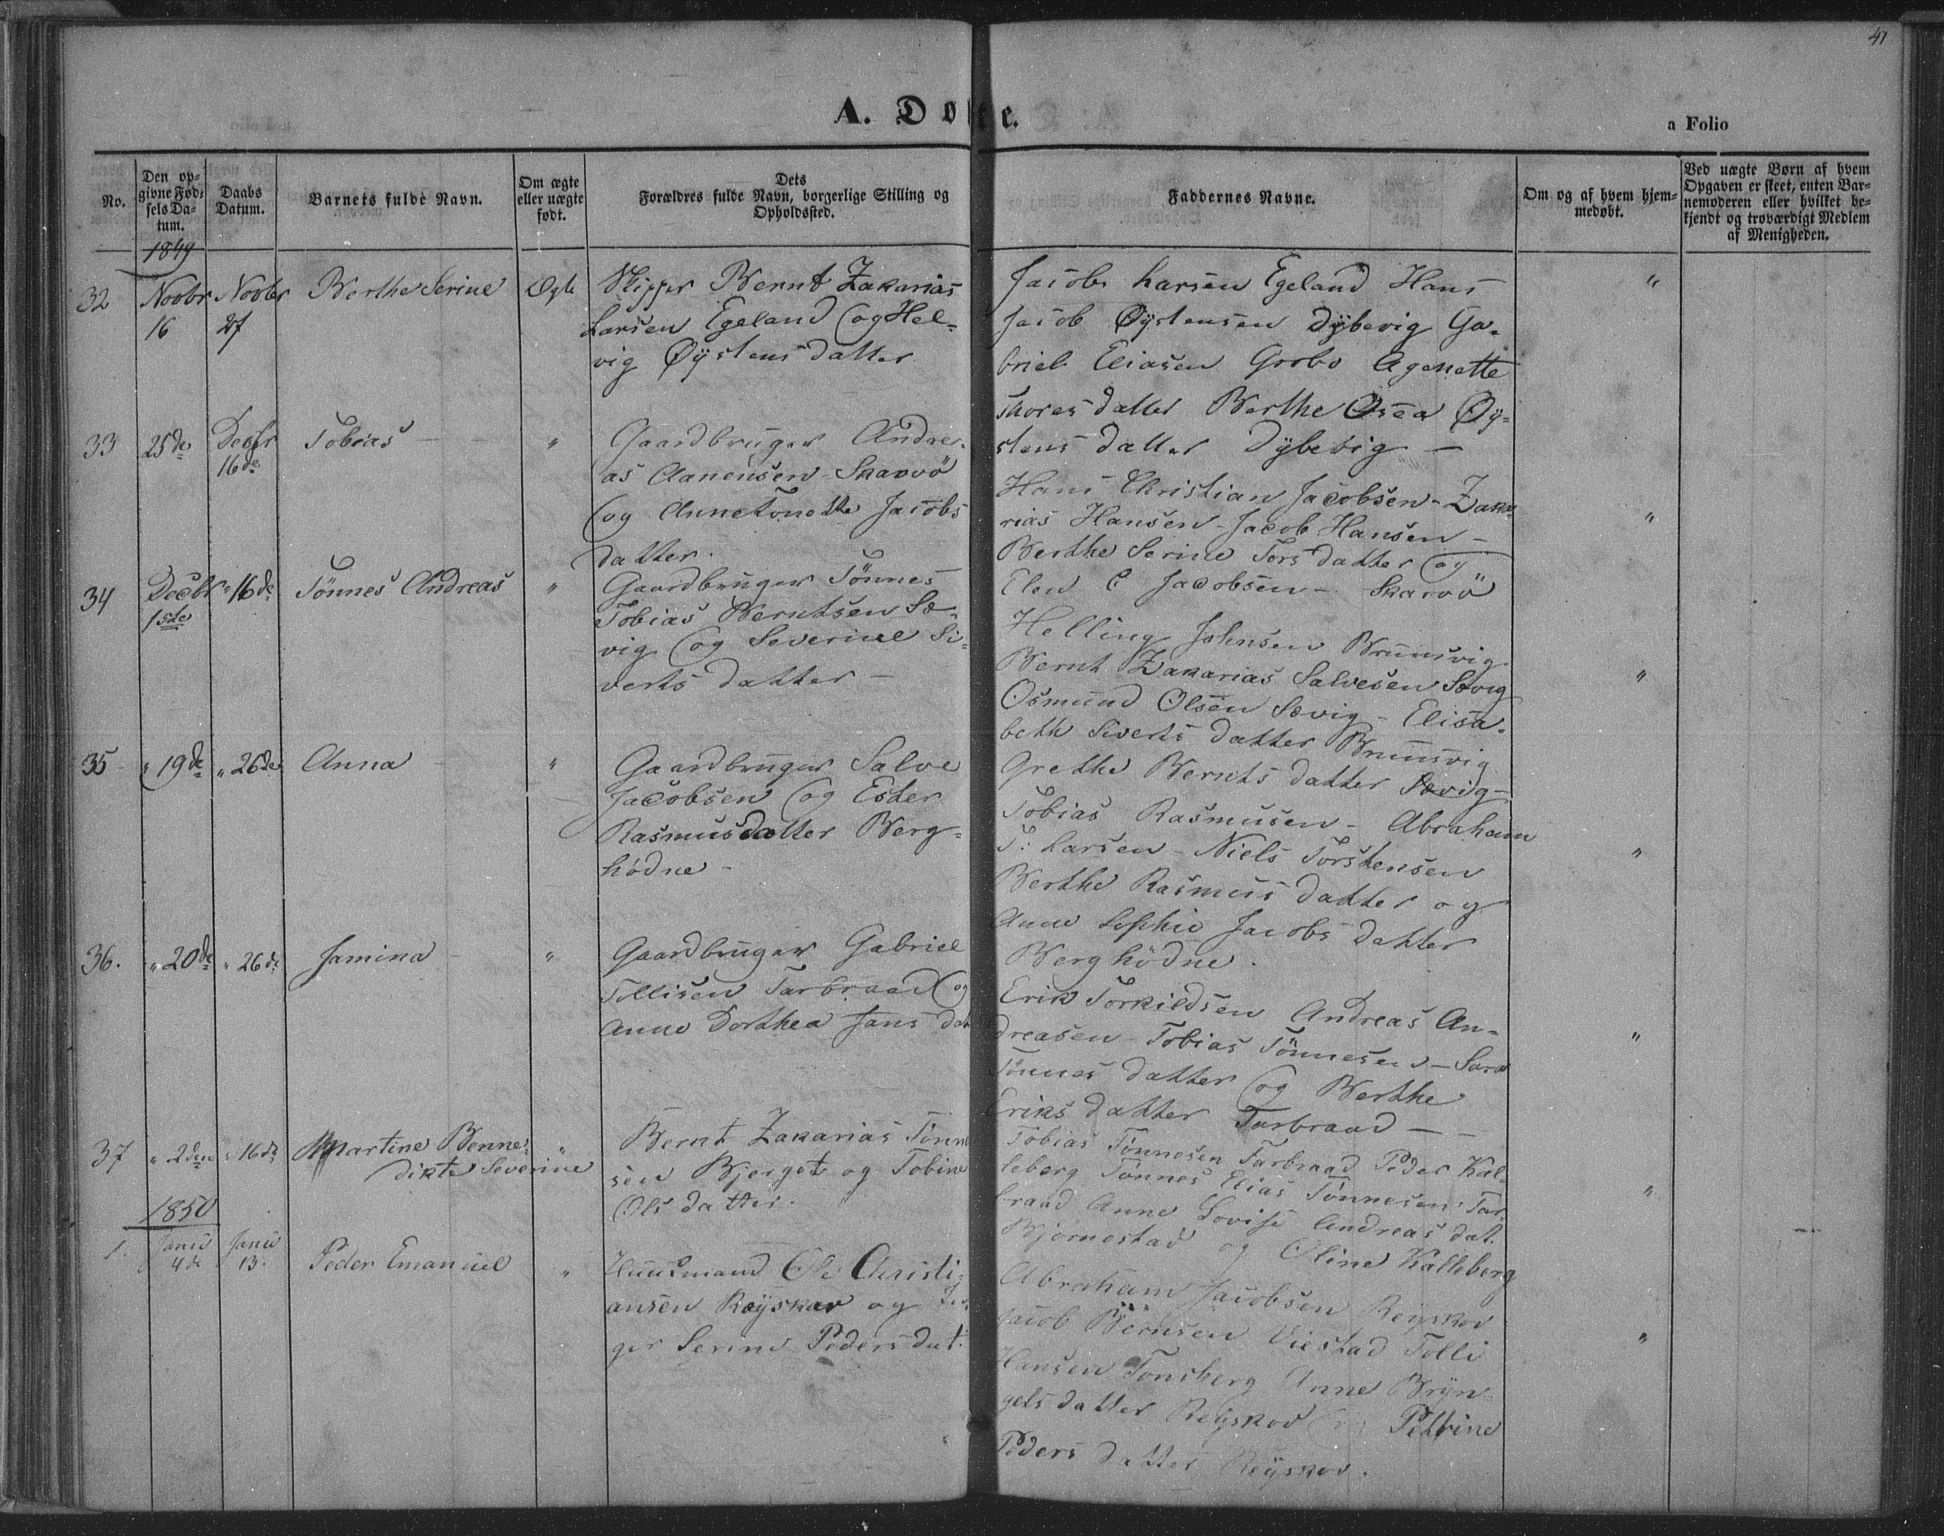 41
A. Døbte.
a Folio
No.
Den op-
givne Fød-
sels Da-
tum.
Daabs
Datum.
Barnets fulde Navn.
Om ægte
eller uægte
født.
Dets
Forældres fulde Navn, borgerlige Stilling og
Opholdssted.
Faddernes Navne.
Om og af hvem hjem-
medøbt.
Ved uægte Børn af hvem
Opgaven er skeet, enten Bar-
nemoderen eller hvilket be-
kjendt og troværdigt Medlem
af Menigheden.
1849
32 Novbr 16 Novbr 27 Berthe Serine Ægte
Skipper Bernt Zakarias
Larsen Egeland og Hel-
vig Øÿstensdatter
Jacob Larsen Egeland Hans
Jacob Øÿstensen Dÿbevig Ga-
briel Eliasen Grobo Agenette
Thoresdatter Berthe Osea Øÿ-
stensdatter Dÿbevig —
"
33 25de Decbr 16de Tobias — "
Gaardbruger Andre-
as Aanensen Skarvö
og Anne Tonette Jacobs
datter.
Hans Christian Jacobsen - Zaka
rias Hansen - Jacob Hansen -
Berthe Serine Torsdatter og
Elen C Jacobsen - Skarvö
"
34 Decbr 1ste " 16de Tönnes Andreas "
Gaardbruger Tönnes
Tobias Berntsen Sæ-
vig og Severine Si-
vertsdatter —
Helling Johnsen Brunsvig
Bernt Zakarias Salvesen Sævig
Osmund Olsen Sævig - Elisa-
beth Sivertsdatter Brunsvig
Grethe Berntsdatter Sævig -
"
35 " 19de " 26de Anna — "
Gaardbruger Salve
Jacobsen og Ester
Rasmusdatter Berg-
hödne -
Tobias Rasmusen - Abraham
T: Larsen - Niels Torstensen
Berthe Rasmusdatter og
Anne Sophie Jacobsdatter
Berghödne.
"
36. " 20de " 26de Jamina — "
Gaardbruger Gabriel
Tollisen Tarbraad og
Anne Dorthea Jansdat
Erik Torkildsen Andreas An-
dreasen - Tobias Tönnesen - Sara
Tönnesdatter og Berthe
Eriksdatter Tarbraad —
"
37 " 2den " 16de Martine Benne-
dikte Severine "
Bernt Zakarias Tönne
sen Bjerget og Tobine
Olsdatter.
Tobias Tönnesen Tarbraad Peder Kal-
leberg Tönnes Elias Tönnesen Tar-
braad Anne Lovise Andreasdat.
Bjørnestad og Oline Kalleberg
"
1850
1. Janu 4de Janu 13. Peder Emanuel "
Huusmand Ole Christi-
ansen Reÿskar og In-
ger Serine Pedersdat.
Abraham Jacobsen Reÿskov
Jacob Bernsen Viestad Tolli
Hansen Tonsberg Anne Brÿn-
gelsdatter Reÿskov og Petrine
Pedersdatter Reÿskov.
"